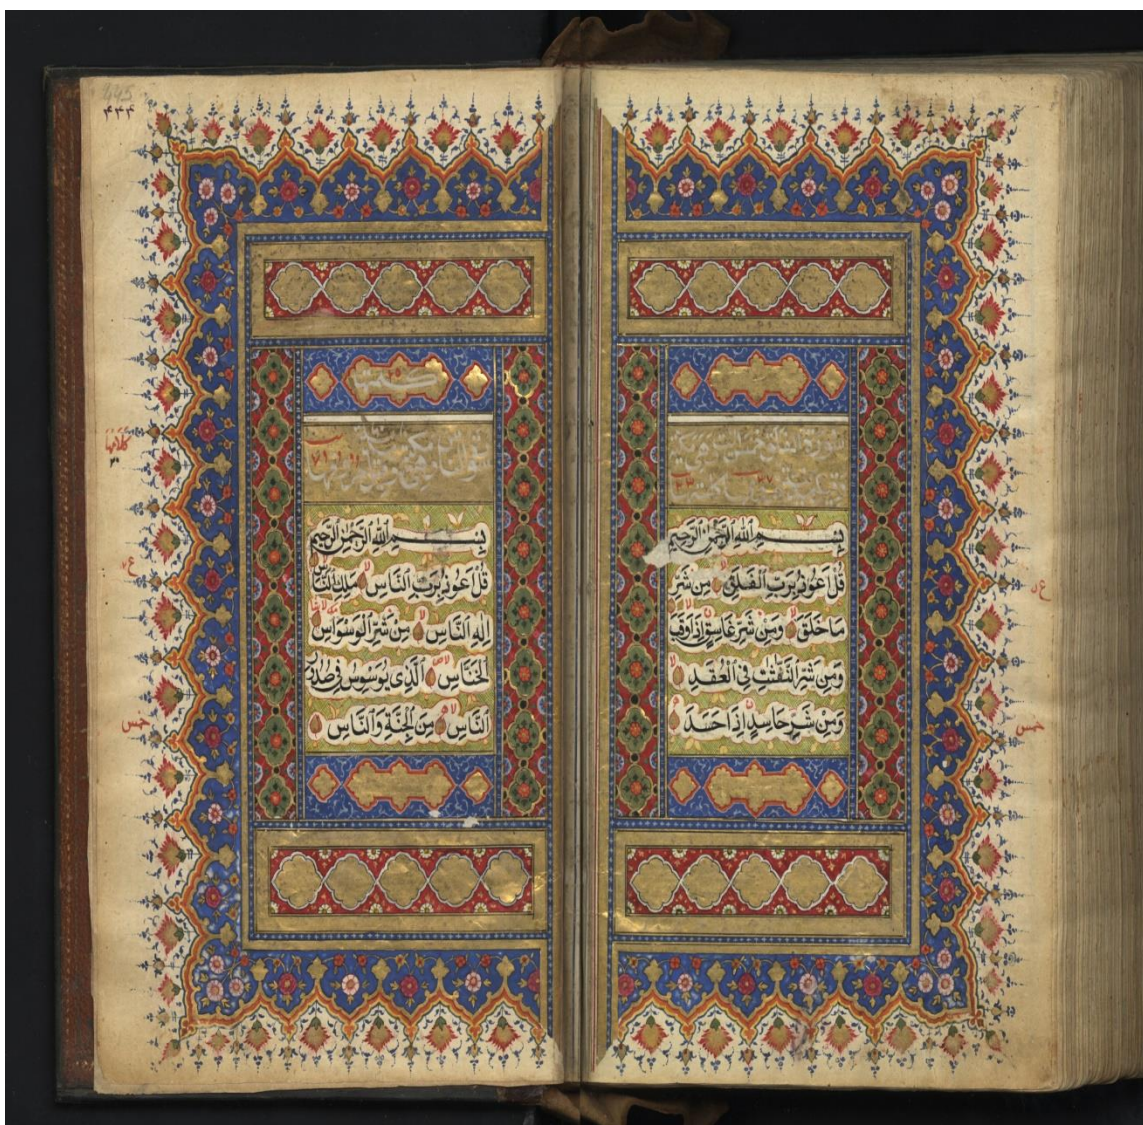 بِسْمِ اللهِ الرَّحْمٰنِ الرَّحِيمِ
قُلْ اَعُوذُ بِرَبِّ الْفَلَقِ مِنْ شَرِّ
مَا خَلَقَ وَمِنْ شَرِّ غَاسِقٍ اِذَا وَقَبَ
وَمِنْ شَرِّ النَّفّٰثٰتِ فِي الْعُقَدِ
وَمِنْ شَرِّ حَاسِدٍ اِذَا حَسَدَ
ع
خمس
۴۴۴
445
بِسْمِ اللهِ الرَّحْمٰنِ الرَّحِيمِ
قُلْ اَعُوذُ بِرَبِّ النَّاسِ مَلِكِ النَّاسِ
اِلٰهِ النَّاسِ مِنْ شَرِّ الْوَسْوَاسِ
الْخَنَّاسِ الَّذِي يُوَسْوِسُ فِي صُدُورِ
النَّاسِ مِنَ الْجِنَّةِ وَالنَّاسِ
ع
خمس